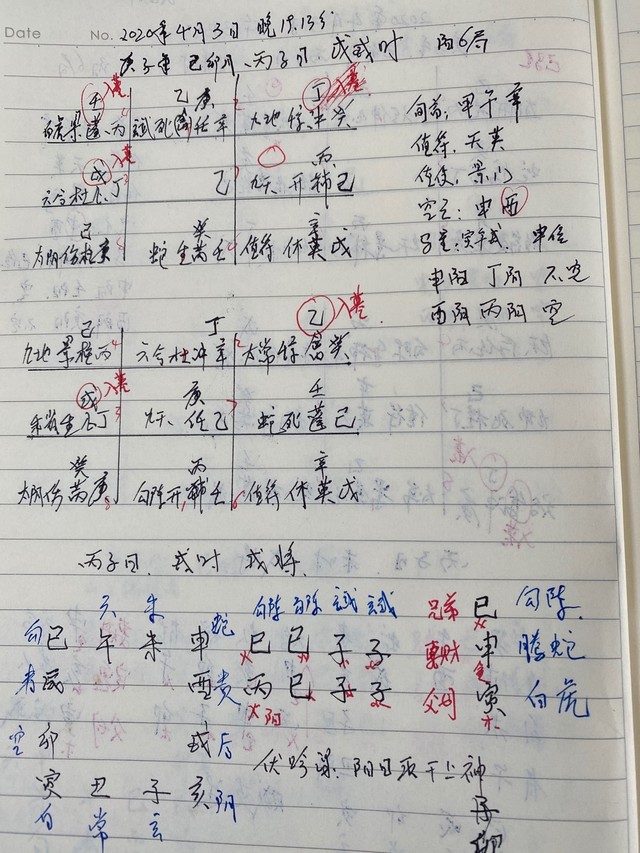 Date No. 2020年4月3日 晚19.13分
庚子年 己卯月、丙子日、戊戌时 阳6局
壬 入墓 乙庚 丁 入墓 旬首:甲午辛
白虎 玄武死 任辛 九地惊 癸 值符:天英
戊 入墓 丙 值使:景门
六合杜 丁 乙 九天 开辅己 空亡:申酉
己 癸 辛 马星:寅午戌 申位
太阴伤柱庚 蛇生芮壬 值符休英戊 申阳丁阴 不空
酉阴丙阳 空
己 丁 乙 入墓
九地景柱丙 六合杜冲辛 太常惊 癸
戊 入墓 庚 壬
生 丁 九天、任乙 蛇死蓬己
癸 丙 辛
太阴伤芮庚 勾陈开辅壬 值符休英戊
丙子日、戌时 戌将
玄 朱 勾陈 勾陈 玄武 玄武
勾 巳 午 未 申 蛇 巳 巳 子 子 兄弟 巳 勾陈
青 辰 酉 贵 丙 巳 子 子 妻财 申 腾蛇
太阳 父母 寅 白虎
空 卯 戌 后 伏吟课、阳日取干上神
寅 丑 子 亥 阴 子
白 常 玄 卯